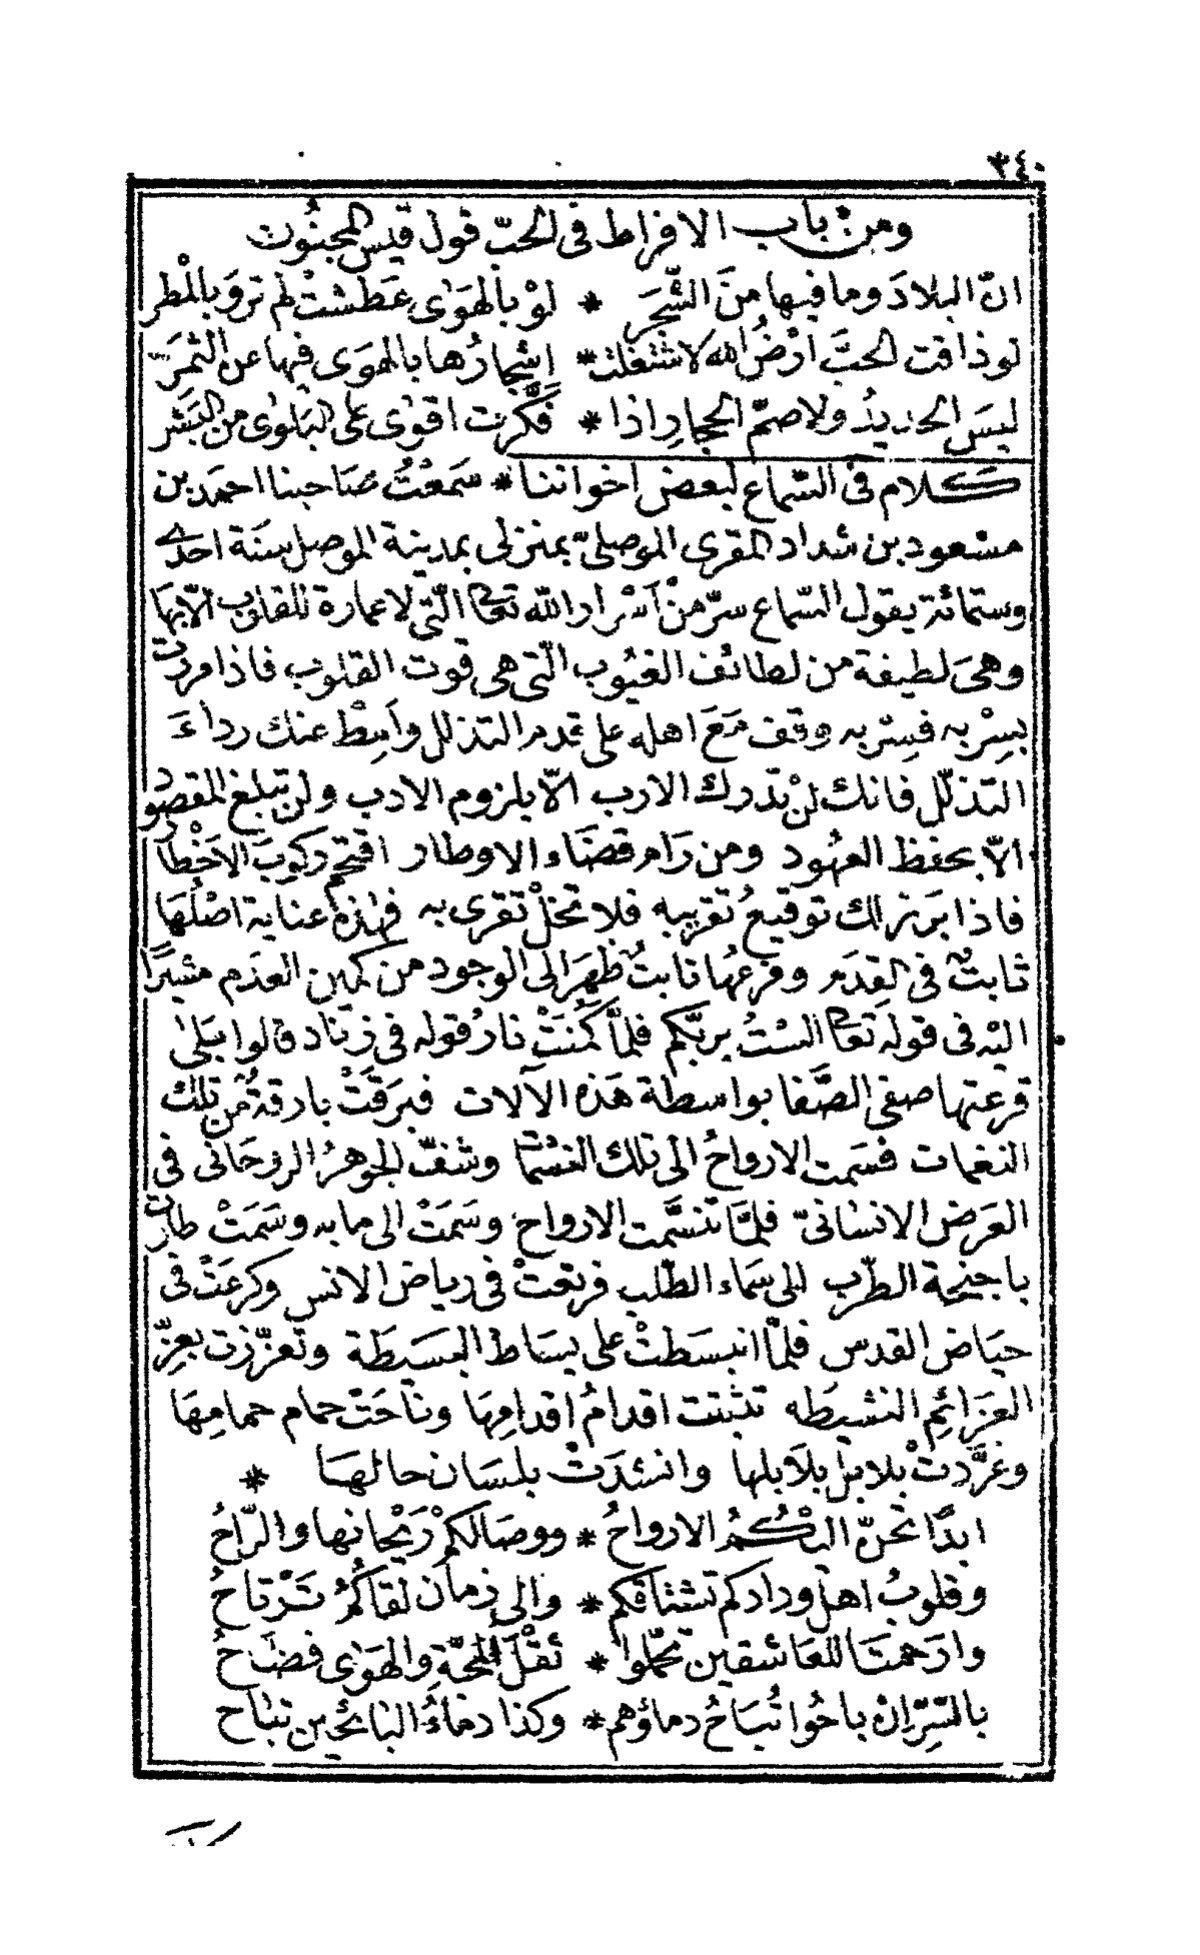 ٣٤٠
ومن باب الافراط فى الحبّ قول قيس المجنُون
انّ البلادَ وما فيها منَ الشّجَر * لوْ بالهَوٰى عَطشتْ لم تروَ بالمْطر
لو ذاقت الحبَّ ارْضُ الله لاشتغلت * اشجارُها بالهوَى فيها عن الثمَرّ
ليسَ الحديدُ ولا صمّ الحجارِ اذا * فكّرت اقوٰى على البَلوٰى من البَشر
كلام فى السّماع لبعض اخواننا * سَمعْتُ صَاحبنا احمَد بن
مسْعود بن شداد المقرى الموصلىّ بمنزلى بمدينة الموصل سنَة احدٰى
وستمائة يقول السّماع سرّ منْ اَسْرار الله تعالى الّتى لا عمارة للقلوب الّا بهَا
وهىَ لطيفة من لطائف الغيُوب الّتى هى قوت القلوب فاذا مررت
بسِرْ به فسِرْ به وقف مَعَ اهله على قدم التذلل واَسِطْ عنك رداءَ
التذلّل فانك لنْ تدرك الارب الّا بلزوم الادب ولن تبلغ المقصُود
الّا بحفظ العهُود ومن رَام قضَاء الاوطار اقتحم ركوبَ الاخْطار
فاذا برَز لك توقيعُ تقريبه فلا تخلْ تقرى به فهٰذه عناية اصْلُهَا
ثابتٌ فى القِدَم وفرعهُا نابتٌ ظهَرَ الى الوجود من كمين العدَم مشيرًا
اليْه فى قوله تعالى السْتُ بربّكم فلمّا كمُنَتْ نارُ قوله فى زناد قالوا بَلىٰ
قرعتها صفى الصَّفا بواسطة هَذه الآلات فبَرقَتْ بارقةٌ من تلك
النغمات فسَمت الارواحُ الى تلك النسْمَات وشفّ الجوهرُ الروحَانى فى
العَرض الانسَانىّ فلمَّا تنسَّمت الارواح وسَمَتْ الى ما به وسَمَتْ طارت
باجنحة الطّرب الى سَماء الطّلب فرتعتْ فى رياض الانس وكرعَتْ فى
حيَاض القدس فلمّا انبسَطتْ على بسَاط البَسَيطَة وتعزّزت بعزِّ
العزَائمِ النشيطه تثبتت اقدامُ اقدامِها ونَاحَتْ حمام حمامِهَا
وغرَّدتْ بلابلُ بلَابلها وانشدَتْ بلسَان حالهَا *
ابدًا تحنّ اليْكُمُ الارواحُ * ووصَالكمْ رَيْحانها والرّاحُ
وقلوبُ اهل ودادكم تشتاقكم * والى زمان لقاكُمُ تَرْتاحُ
وارَحمتَا للعَاشقين تحمّلوا * ثقْلَ المحبّةِ والهَوٰى فضّاحُ
بالسّرّ اِنْ باحُوا تُبَاحُ دماؤهم * وكذا دمَاءُ البائحين تباح